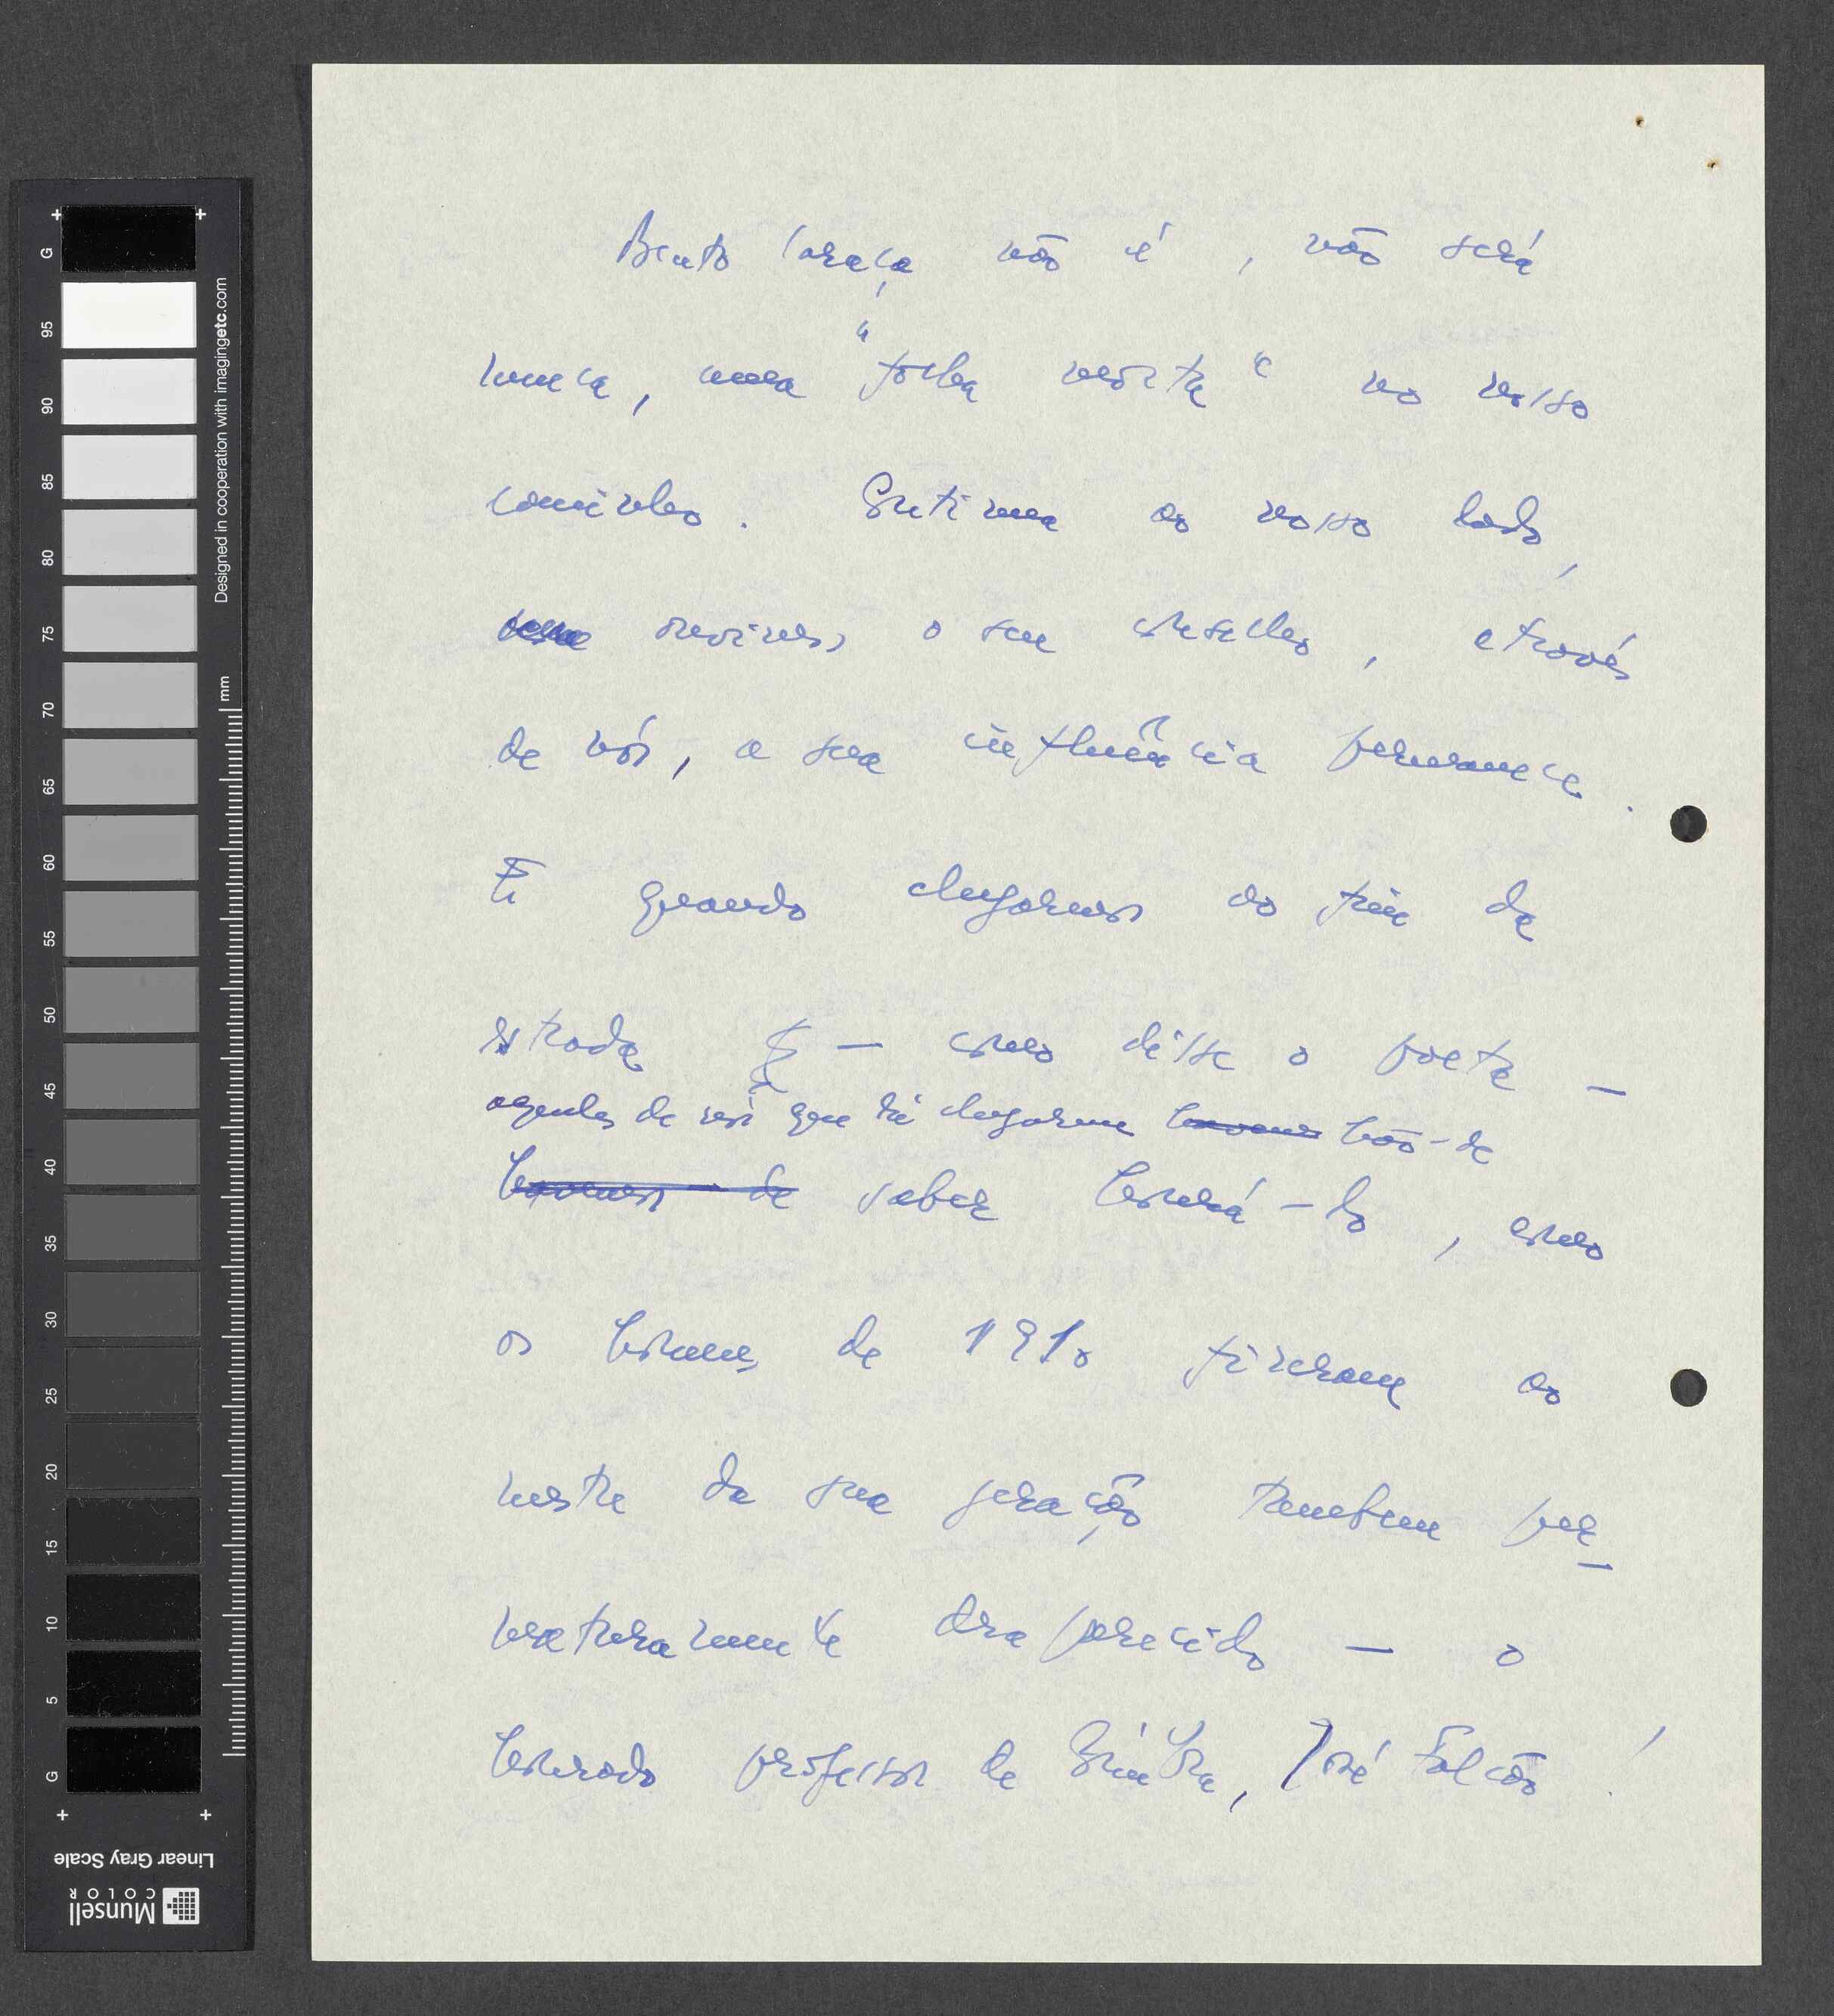 Bento Caraça não é, não será
nunca, uma "folha morta" no nosso
caminho. Continua ao nosso lado,
ouvimos o seu conselho, através
de nós, a sua influência permanece.
E quando chegarmos ao fim da
estrada — como disse o poeta —
aqueles de nós que lá chegarem hão-de
havemos de saber honrá-lo, como
os homens de 1910 fizeram ao
mestre da sua geração tambem pre-
maturamente desaparecido — o
honrado professor de Coimbra, José Falcão!
G 95 90 85 80 75 70 65 60 55 50 45 40 35 30 25 20 15 10 5 G
Designed in cooperation with imagingetc.com
mm
Linear Gray Scale
Munsell
COLOR